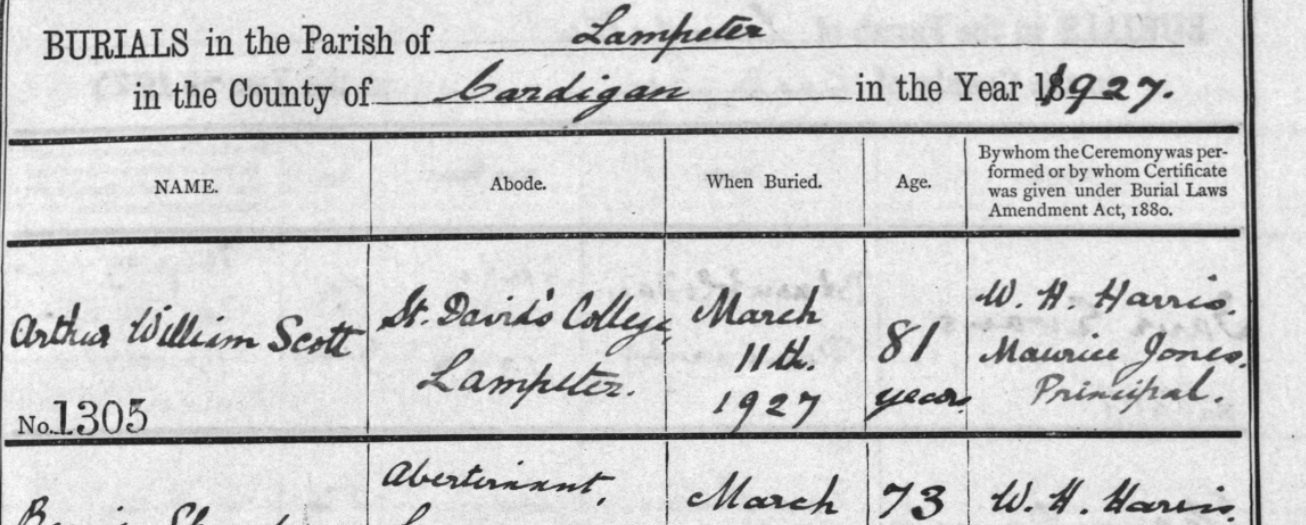 BURIALS in the Parish of Lampeter
in the County of Cardigan in the Year 1927.
NAME.
Abode.
When Buried.
Age.
By whom the Ceremony was per-
formed or by whom Certificate
was given under Burial Laws
Amendment Act, 1880.
Arthur William Scott
No. 1305
St. David's College,
Lampeter.
March
11th.
1927
81
years.
W. H. Harris.
Maurice Jones.
Principal.
March
73
W. H. Harris